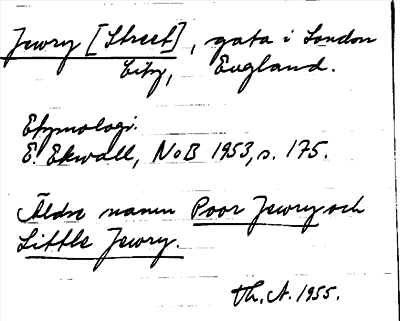 Jewry [Street], gata i London
City, England.
Etymologi.
E. Ekwall, NoB 1953, s. 175.
Äldre namn Poor Jewry och
Little Jewry.
Th. A. 1955.